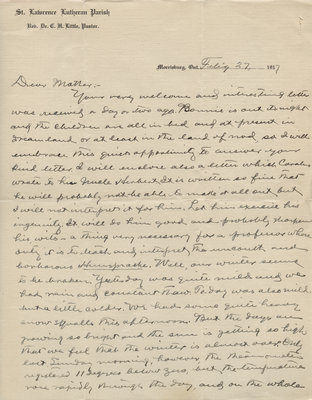 St. Lawrence Lutheran Parish
Rev. Dr. C. H. Little, Pastor.
Morrisburg, Ont. Feby 27 1917
Dear Mother:-
Your very welcome and interesting letter
was received a day or two ago. Bonnie is out tonight
and the children are all in bed and at present in
dreamland or at least in the land of nod, so I will
embrace this quiet opportunity to answer your
kind letter. I will enclose also a letter which Caroline
wrote to his Uncle Herbert. It is written so fine that
he will probably not be able to make it all out but
I will not interpret it for him. Let him exercise his
ingenuity. It will do him good and probably sharpen
his wits - a thing very necessary for a professor whose
duty it is to teach and interpret the uncouth and
barbarous Hunsprache. Well our winter seems
to be broken. Yesterday was quite mild and we
had rain and constant thaw. Today was also mild
but a little colder. We had some quite heavy
snow squalls this afternoon. But the days are
growing so bright and the sun is getting so high
that we feel that the winter is almost over. Only
last Sunday morning, however the thermometer
registered 11 degrees below zero, but the temperature
rose rapidly through the day, and on the whole